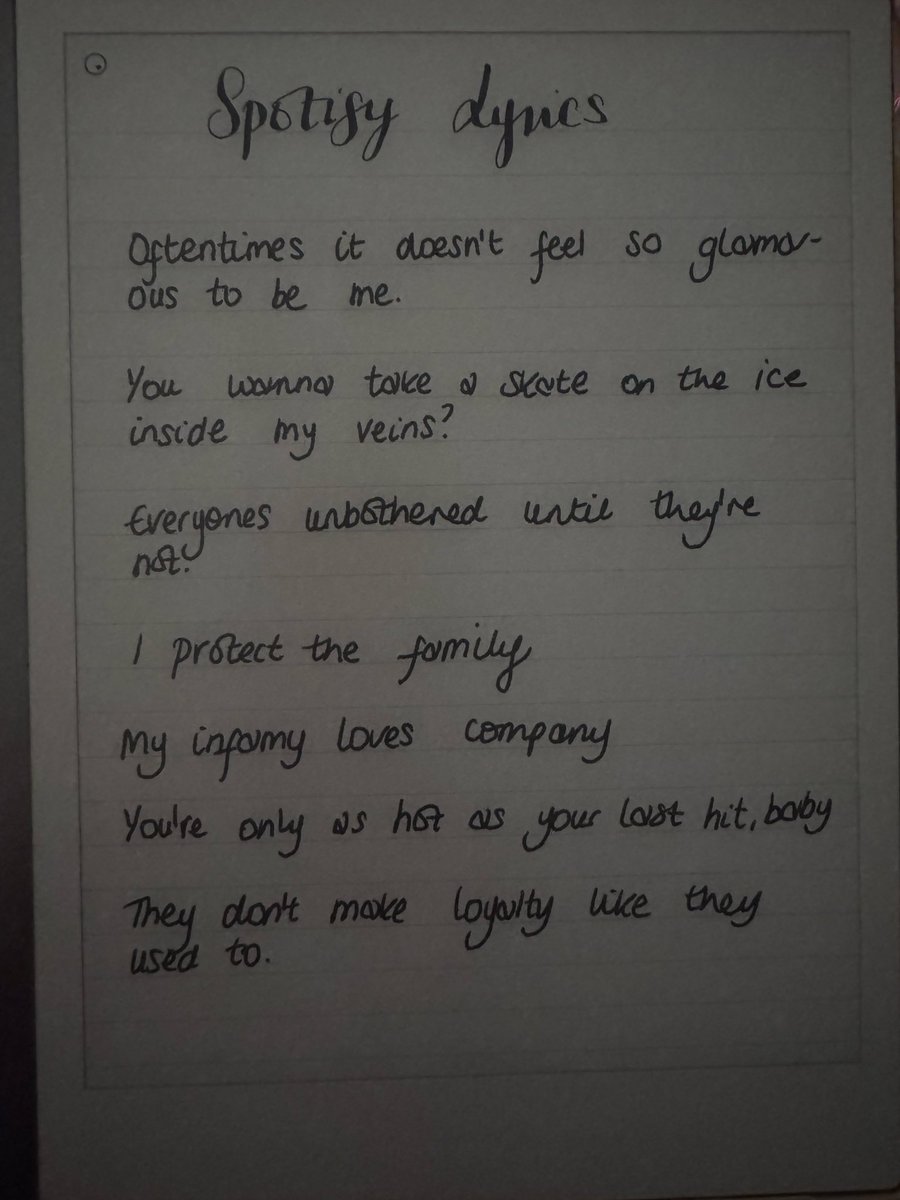 Spotify Lyrics
Oftentimes it doesn't feel so glamor-
ous to be me.
You wanna take a skate on the ice
inside my veins?
Everyones unbothered until they're
not.
I protect the family
My infamy loves company
You're only as hot as your last hit, baby
They don't make loyalty like they
used to.